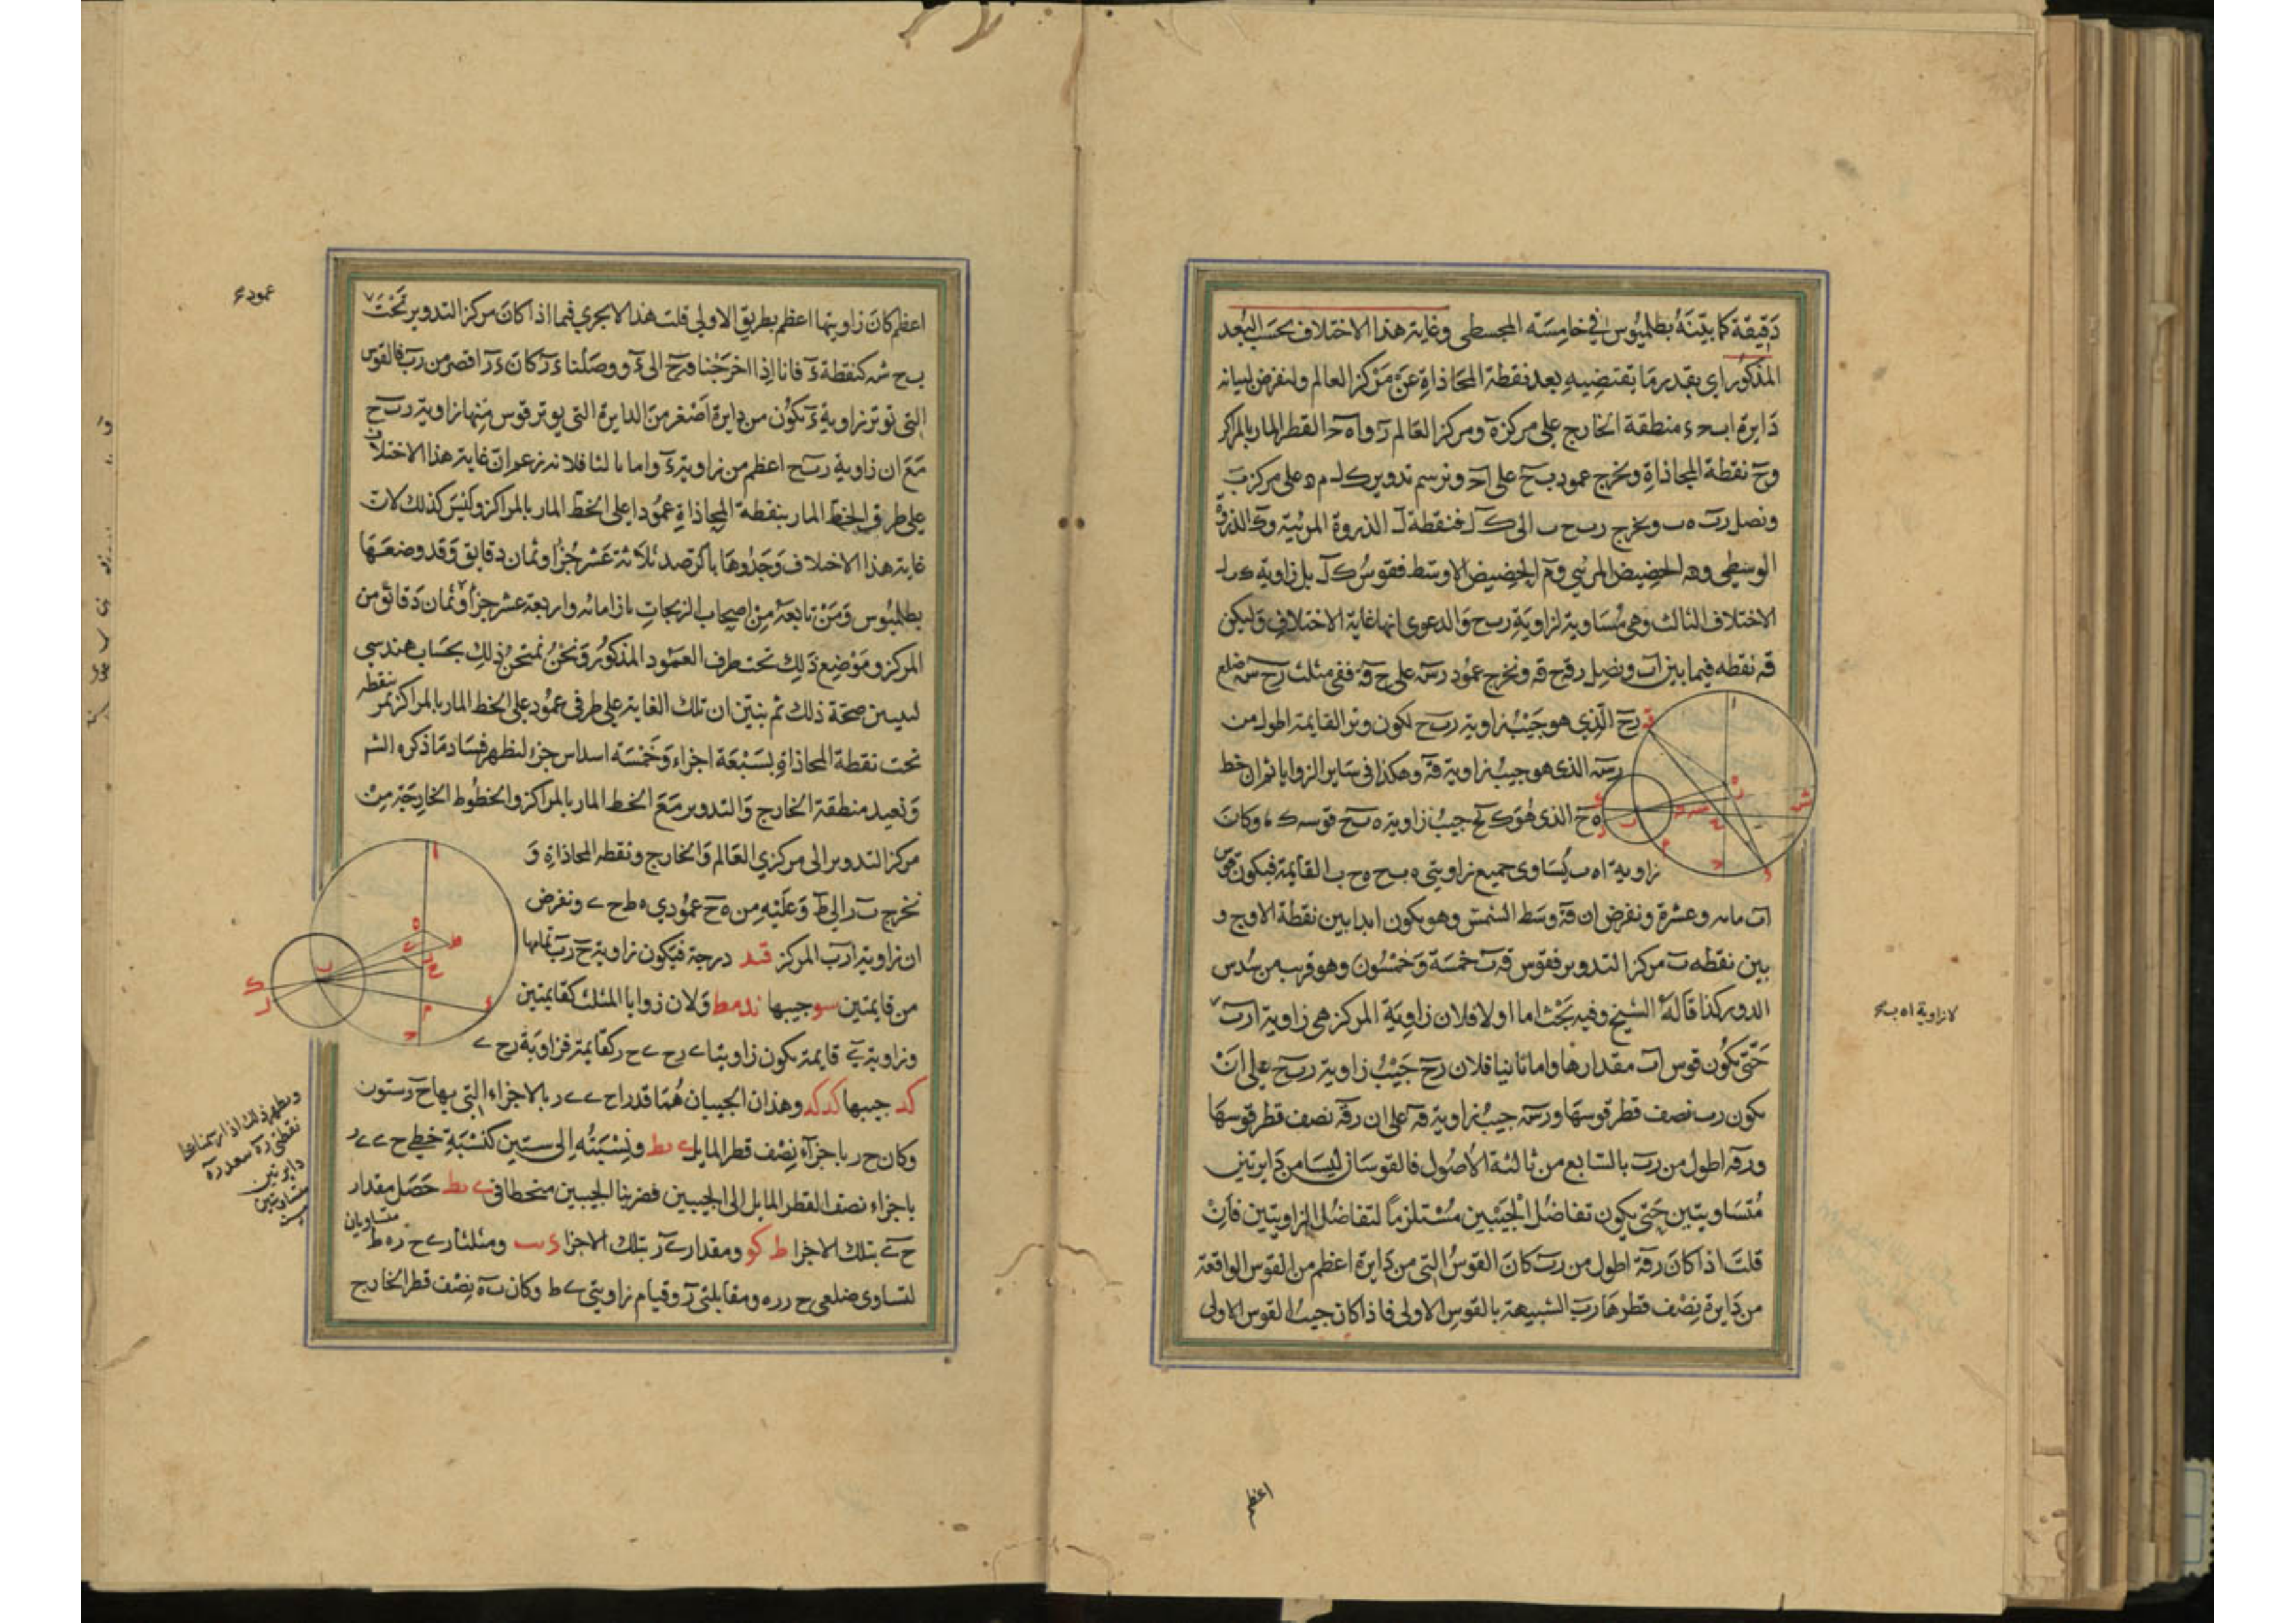 دقيقة كما بيّنه بطلميوس في خامسة المجسطي وغاية هذا الاختلاف بحسب البُعد
المذكور اي بقدر ما يقتضيه بعد نقطة المحاذاة عن مركز العالم ولنفرض لبيانه
دايرة ابحء منطقة الخارج على مركز ه ومركز العالم ر واه حـ القطر المار بالمراكز
وح نقطة المحاذاة ونخرج عمود ب ح على احـ ونرسم تدوير ك ل م ه على مركز ب
ونصل رب ه ب ونخرج رب ح ب الى ك ل فنقطة ل الذروة المرئية وك الذروة
الوسطى وه الحضيض المرئي وم الحضيض الاوسط فقوس ك ل بل زاوية ك ب ل
الاختلاف الثالث وهي مساوية لزاوية ر ب ح والدعوى انها غاية الاختلاف وليكن
ق نقطه فيما بين اب ونصل ر ق ح ق ونخرج عمود ر س على ح ق ففي مثلث ر ح س ضلع
ر ح الذي هو جيب زاوية ر ب ح لكون وتر القايمة اطول من
ر س الذي هو جيب زاوية ق وهكذا في ساير الزوايا ثم ان خط
ه ح الذي هو جيب زاوية ه ب ح قوسه وكان
زاوية ا ه ب يساوى جميع زاويتي ه ب ح ه ح ب القايمة فيكون قوس
اب مايه وعشرة ونفرض ان ق وسط الشمس وهو يكون ابدا بين نقطة الاوج و
بين نقطه ب مركز التدوير فقوس ق ب خمسة وخمسون وهو قريب من سدس
الدور كذا قاله الشيخ وفيه بحث اما اولا فلان زاوية المركز هي زاوية ا ر ب
لا زاوية ا ه ب
حتى يكون قوس اب مقدارها واما ثانيا فلان ر ح جيب زاوية ر ب ح على ان
يكون ر ب نصف قطر قوسها و ر س جيب زاوية ق على ان ر ق نصف قطر قوسها
و ر ق اطول من ر ب بالسابع من ثالثة الاصول فالقوسان ليسا من دايرتين
متساويتين حتى يكون تفاضل الجيبين مستلزماً لتفاضل الزاويتين فان
قلت اذا كان ر ق اطول من ر ب كان القوس التي من دايرة اعظم من القوس الواقعة
من دايرة نصف قطرها ر ب الشبيهة بالقوس الاولى فاذا كان جيب القوس الاولى
اعظم
اعظم كان زاويتها اعظم بطريق الاولى قلت هذا لا يجري فيما اذا كان مركز التدوير تحت
عمود
ب ح ش كنقطة ء فانا اذا اخرجنا ق ح الى ء ووصلنا ء ر كان ء ر اقصر من ر ب فالقوس
التي توتر زاوية ء يكون من دايرة اصغر من الدايرة التي يوتر قوس منها زاوية ر ب ح
مع ان زاوية ر ب ح اعظم من زاوية ء واما ثالثا فلانه زعم ان غاية هذا الاختلاف
على طرفي الخط المار بنقطة المحاذاة عمودا على الخط المار بالمراكز وليس كذلك لان
غاية هذا الاختلاف وجدوها بالرصد ثلاثة عشر جزأ وثمان دقايق وقد وضعها
بطلميوس ومن تابعه من اصحاب الزيجات بازاء مائه واربعة عشر جزأ وثمان دقائق من
المركز وموضع ذلك تحت طرف العمود المذكور ونحن نمتحن ذلك بحساب هندسي
ليتبين صحة ذلك ثم نبين ان تلك الغاية على طرفى عمود على الخط المار بالمراكز يمر بنقطه
تحت نقطة المحاذاة بسبعة اجزاء وخمسة اسداس جزء ليظهر فساد ما ذكره الش
ونعيد منطقة الخارج والتدوير مع الخط المار بالمراكز والخطوط الخارجة من
مركز التدوير الى مركزي العالم والخارج ونقطه المحاذاة و
نخرج ب ر الى ط وعليه من ه ح عمودي ه ط ح ى ونفرض
ان زاوية ا ر ب المركز قيد درجة فيكون زاوية ح ر ب تمامها
من قايمتين سو جيبها ند مط ولان زوايا المثلث كقايمتين
وزاوية ى قايمة يكون زاويتا ى ر ح ى ح ر كقايمة فزاوية ر ح ى
كد جيبها كد كد وهذان الجيبان هما قدرا ح ى ى ر بالاجزاء التي بها ح ر ستون
وكان ح ر باجزاء نصف قطر المايل ى يط ونسبته الى ستين كنسبة خطي ح ى ى ر
باجزاء نصف القطر المايل الى الجيبين فضربنا الجيبين منحطا في ى يط حصل مقدار
ح ى بتلك الاجزا ط كو ومقدار ى ر بتلك الاجزا ومثلثا ر ى ح ر ه ط متساويان
لتساوى ضلعي ح ر ر ه ومقابلتي ر وقيام زاويتي ى ط وكان ب ه نصف قطر الخارج
ويظهر ذلك اذا رسمنا على
نقطتي
دايرتين
متساويتين